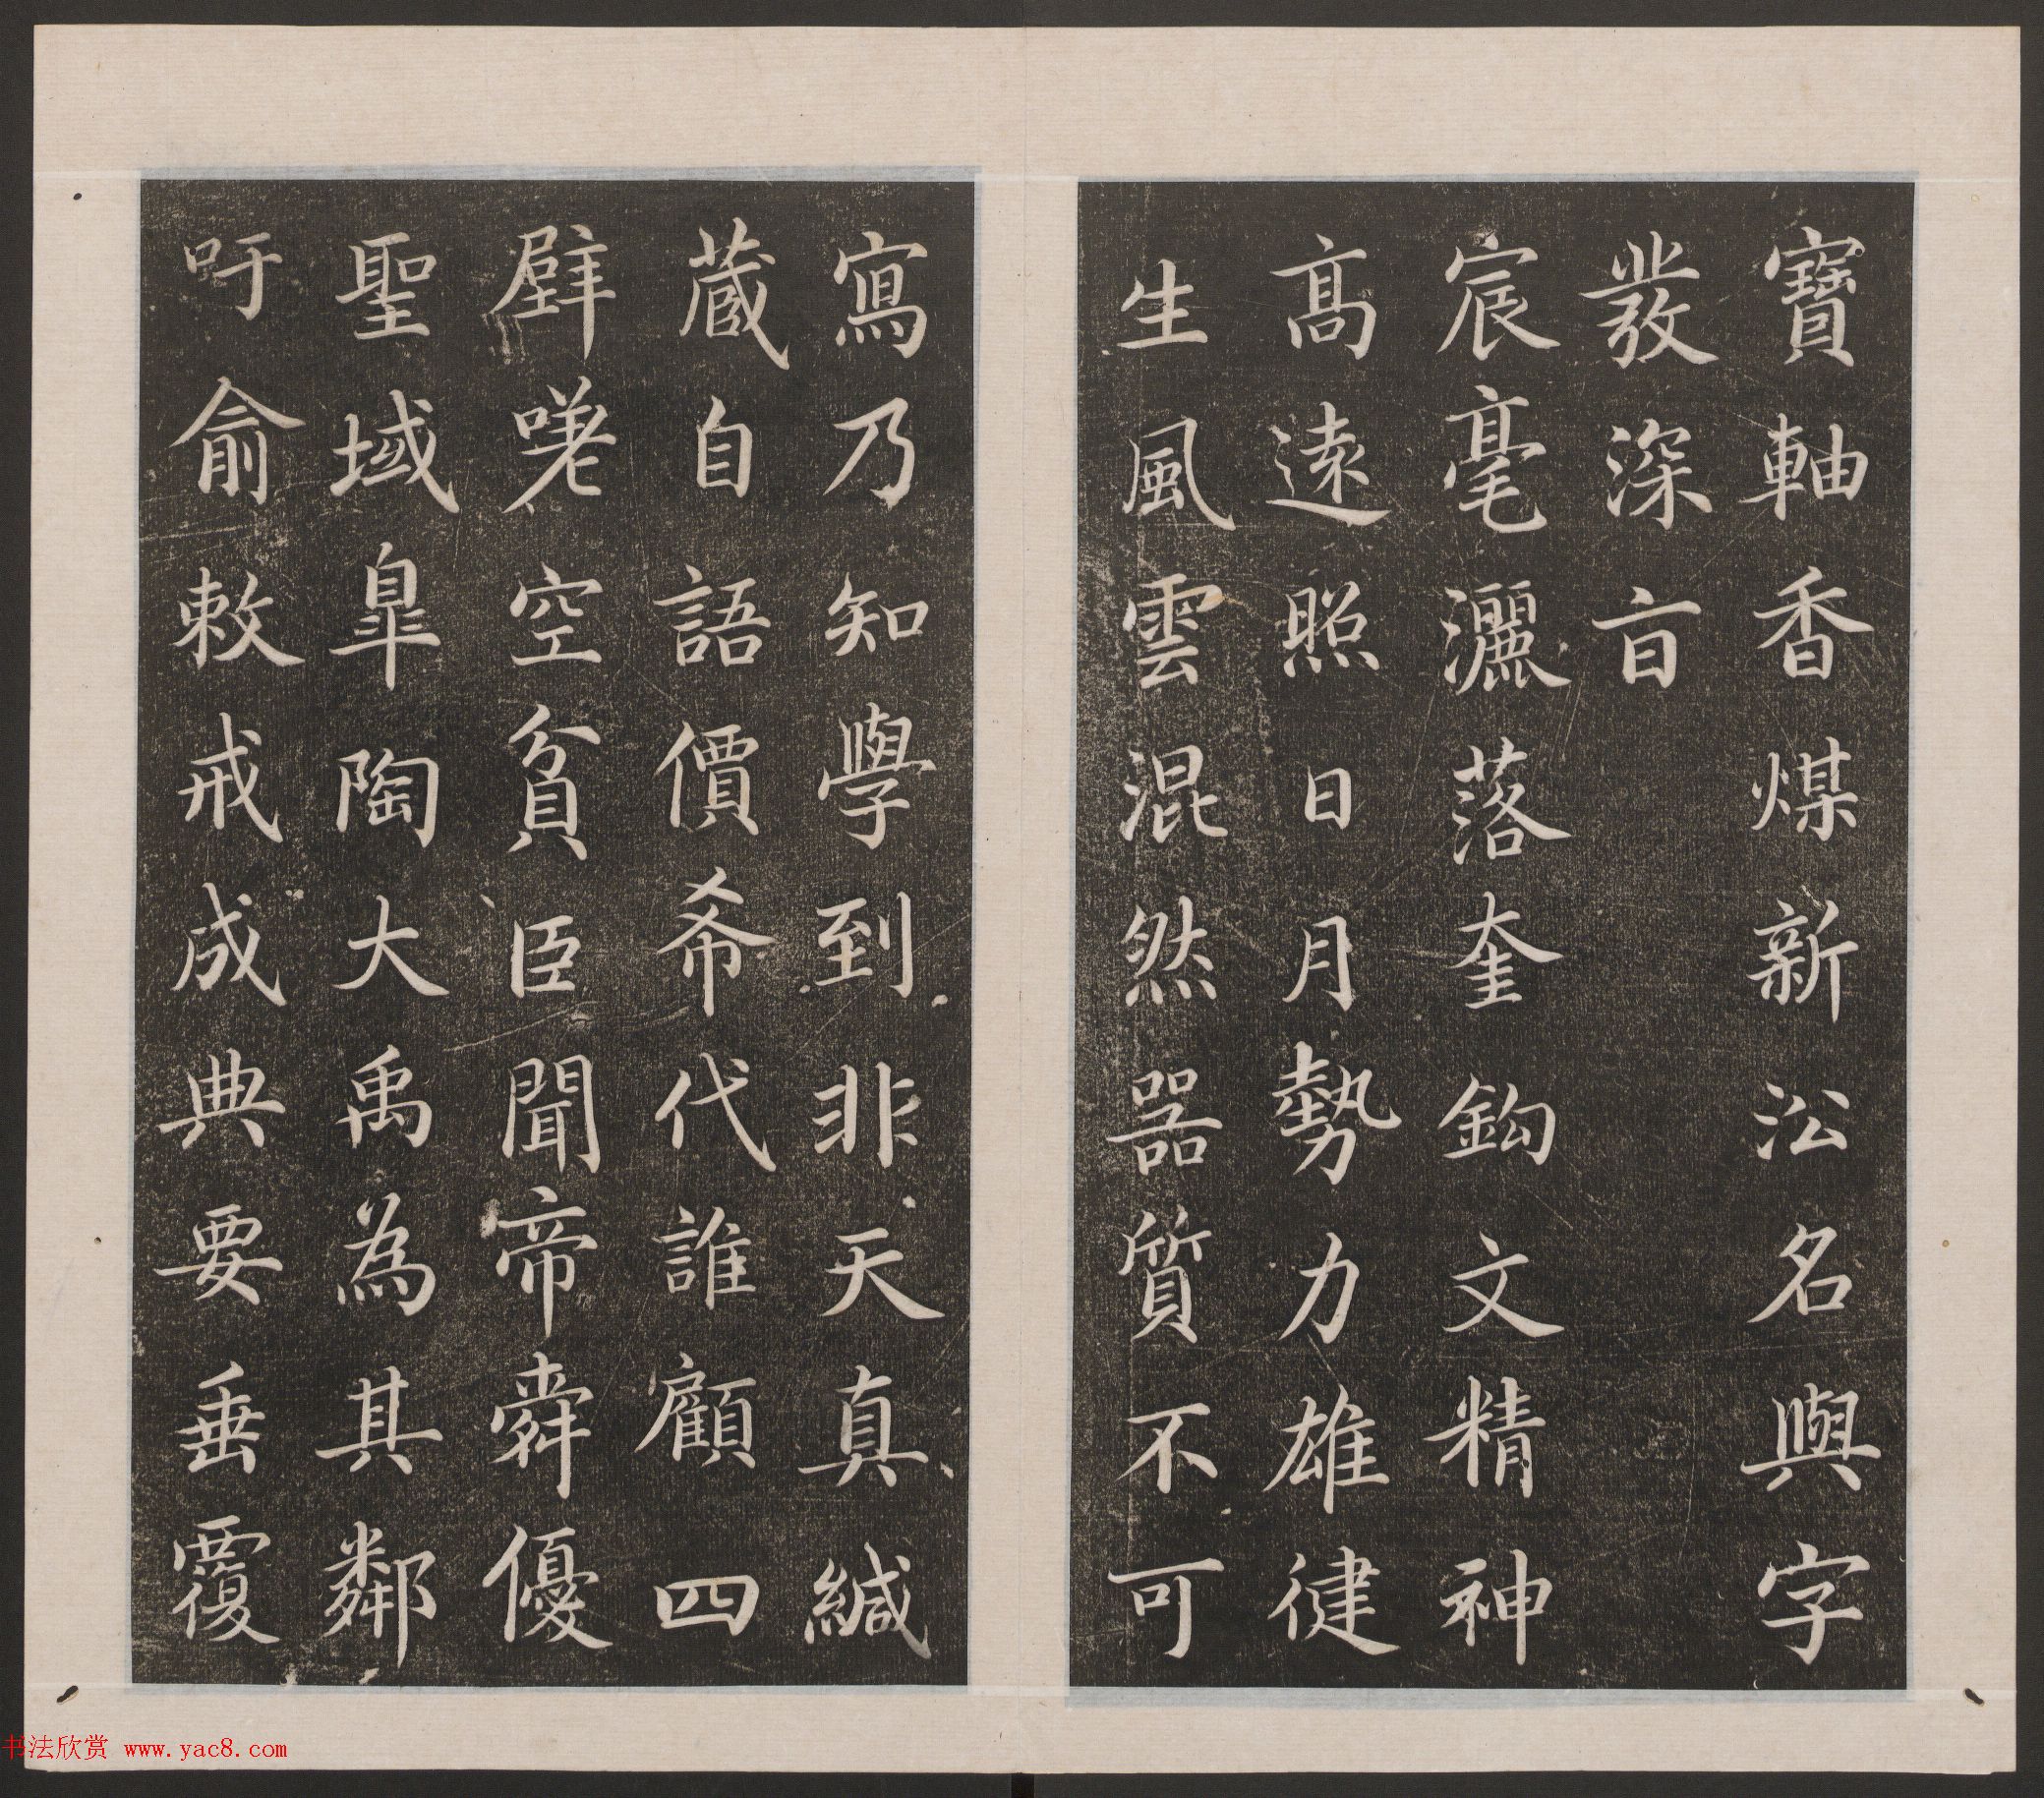 寶軸香煤新㳂名與字
發深㐭
宸毫灑落奎鈎文精神
高遠照日月勢力雄健
生風雲混然器質不可
寫乃知學到非天真緘
蔵自語價希代誰顧四
壁嗟空貧臣聞帝舜優
聖域皐陶大禹為其鄰
吁俞敕戒成典要垂覆
书法欣赏 www.yac8.com